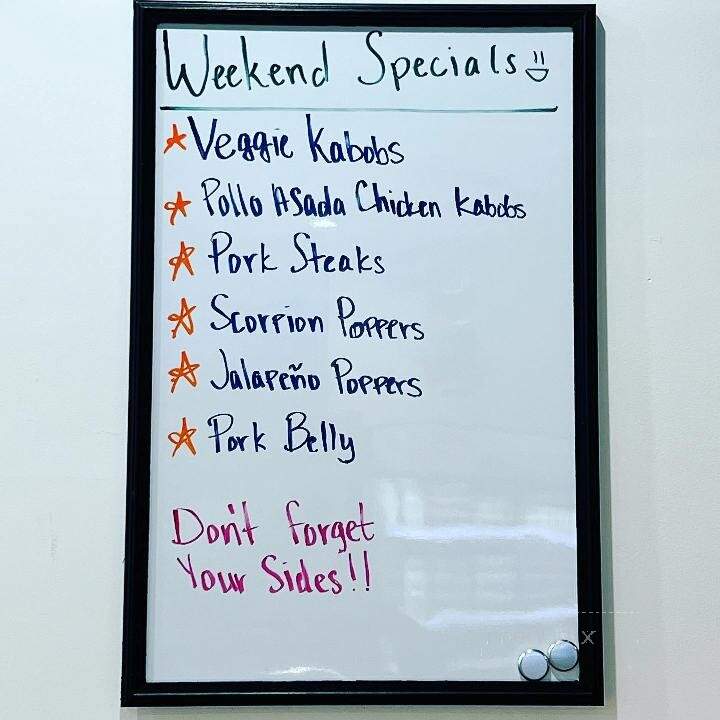 Weekend Specials
Veggie Kabobs
Pollo Asada Chicken Kabobs
Pork Steaks
Scorpion Poppers
Jalapeño Poppers
Pork Belly
Don't forget
Your Sides!!